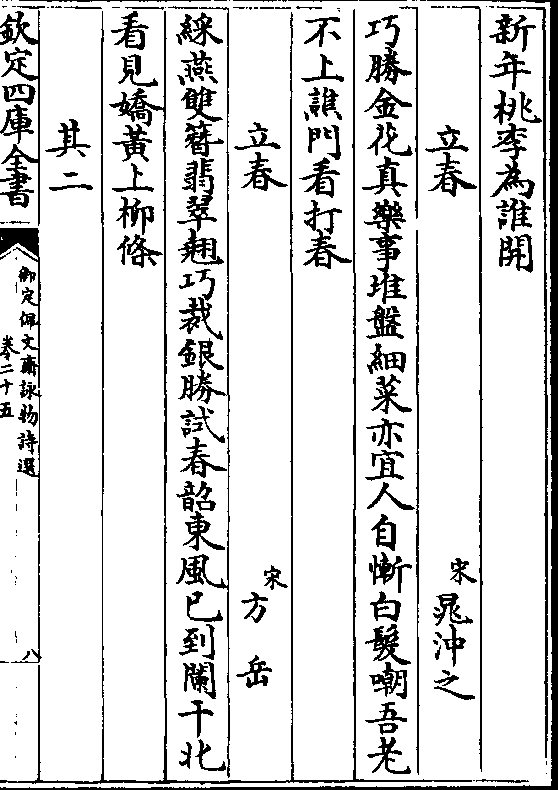 新年桃李為誰開
立春 宋 晁沖之
巧勝金花真樂事堆盤細菜亦宜人自慚白髮嘲吾老
不上譙門看打春
立春 宋 方岳
綵燕雙簪翡翠翹巧裁銀勝試春韶東風已到闌干北
看見嬌黃上柳條
其二
欽定四庫全書
御定佩文齋詠物詩選
卷二十五
八